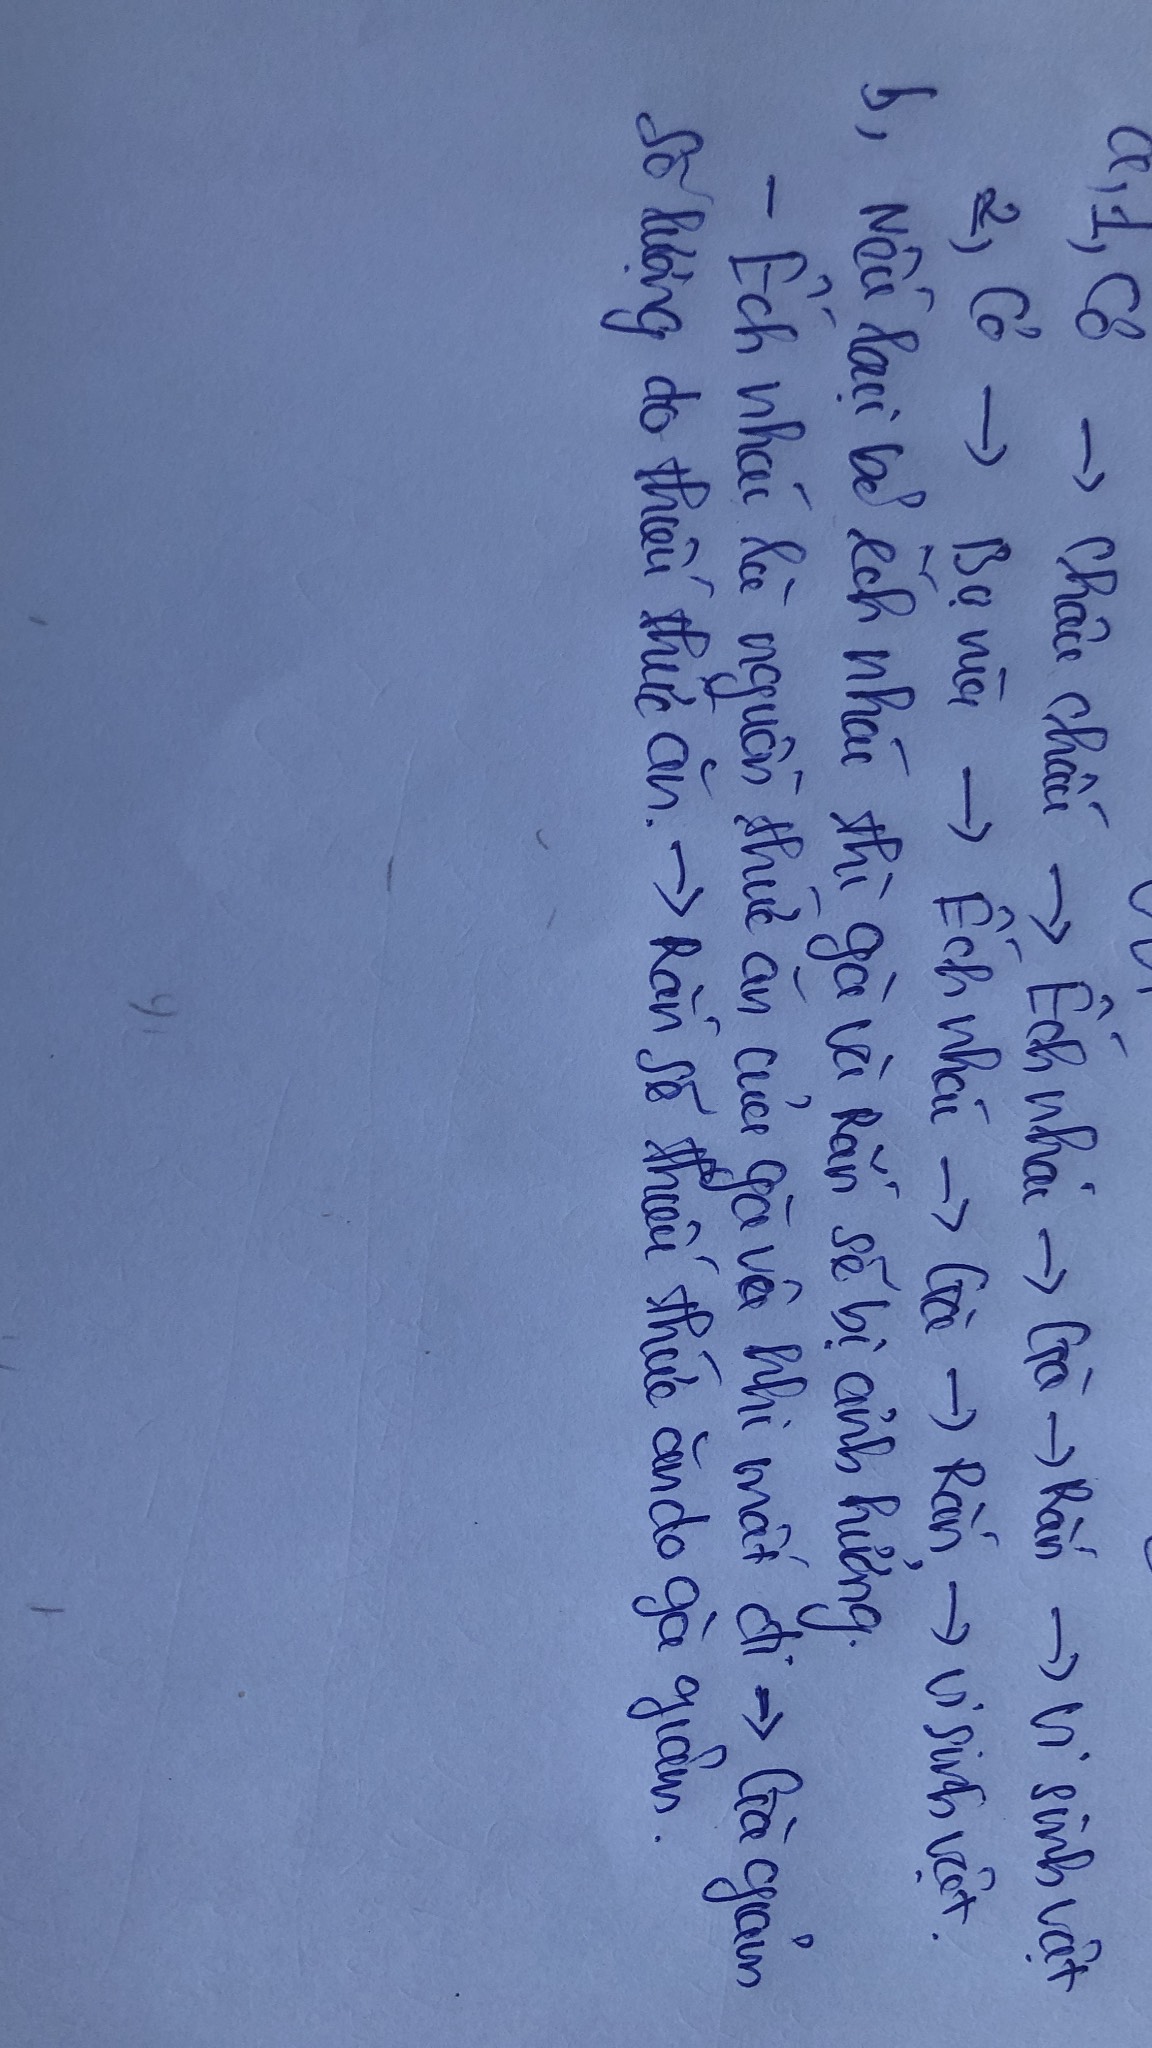 a, 1, Cỏ → Châu chấu → Ếch nhái → Gà → Rắn → Vi sinh vật
2, Cỏ → Bọ rùa → Ếch nhái → Gà → Rắn → Vi sinh vật.
b, Nếu loại bỏ ếch nhái thì gà và rắn sẽ bị ảnh hưởng.
- Ếch nhái là nguồn thức ăn của gà và khi mất đi → Gà giảm
số lượng do thiếu thức ăn. → Rắn sẽ thiếu thức ăn do gà giảm.